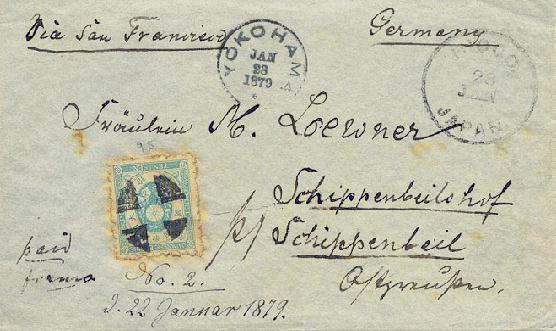 Via San Francisco
Germany
YOKOHAMA
JAN
28
1879
HIOGO
23
JAN
JAPAN
Fräulein M. Loewner
Schippenbeilshof
p/ Schippenbeil
Ostpreußen.
paid
franco
No. 2.
d. 22 Januar 1879.